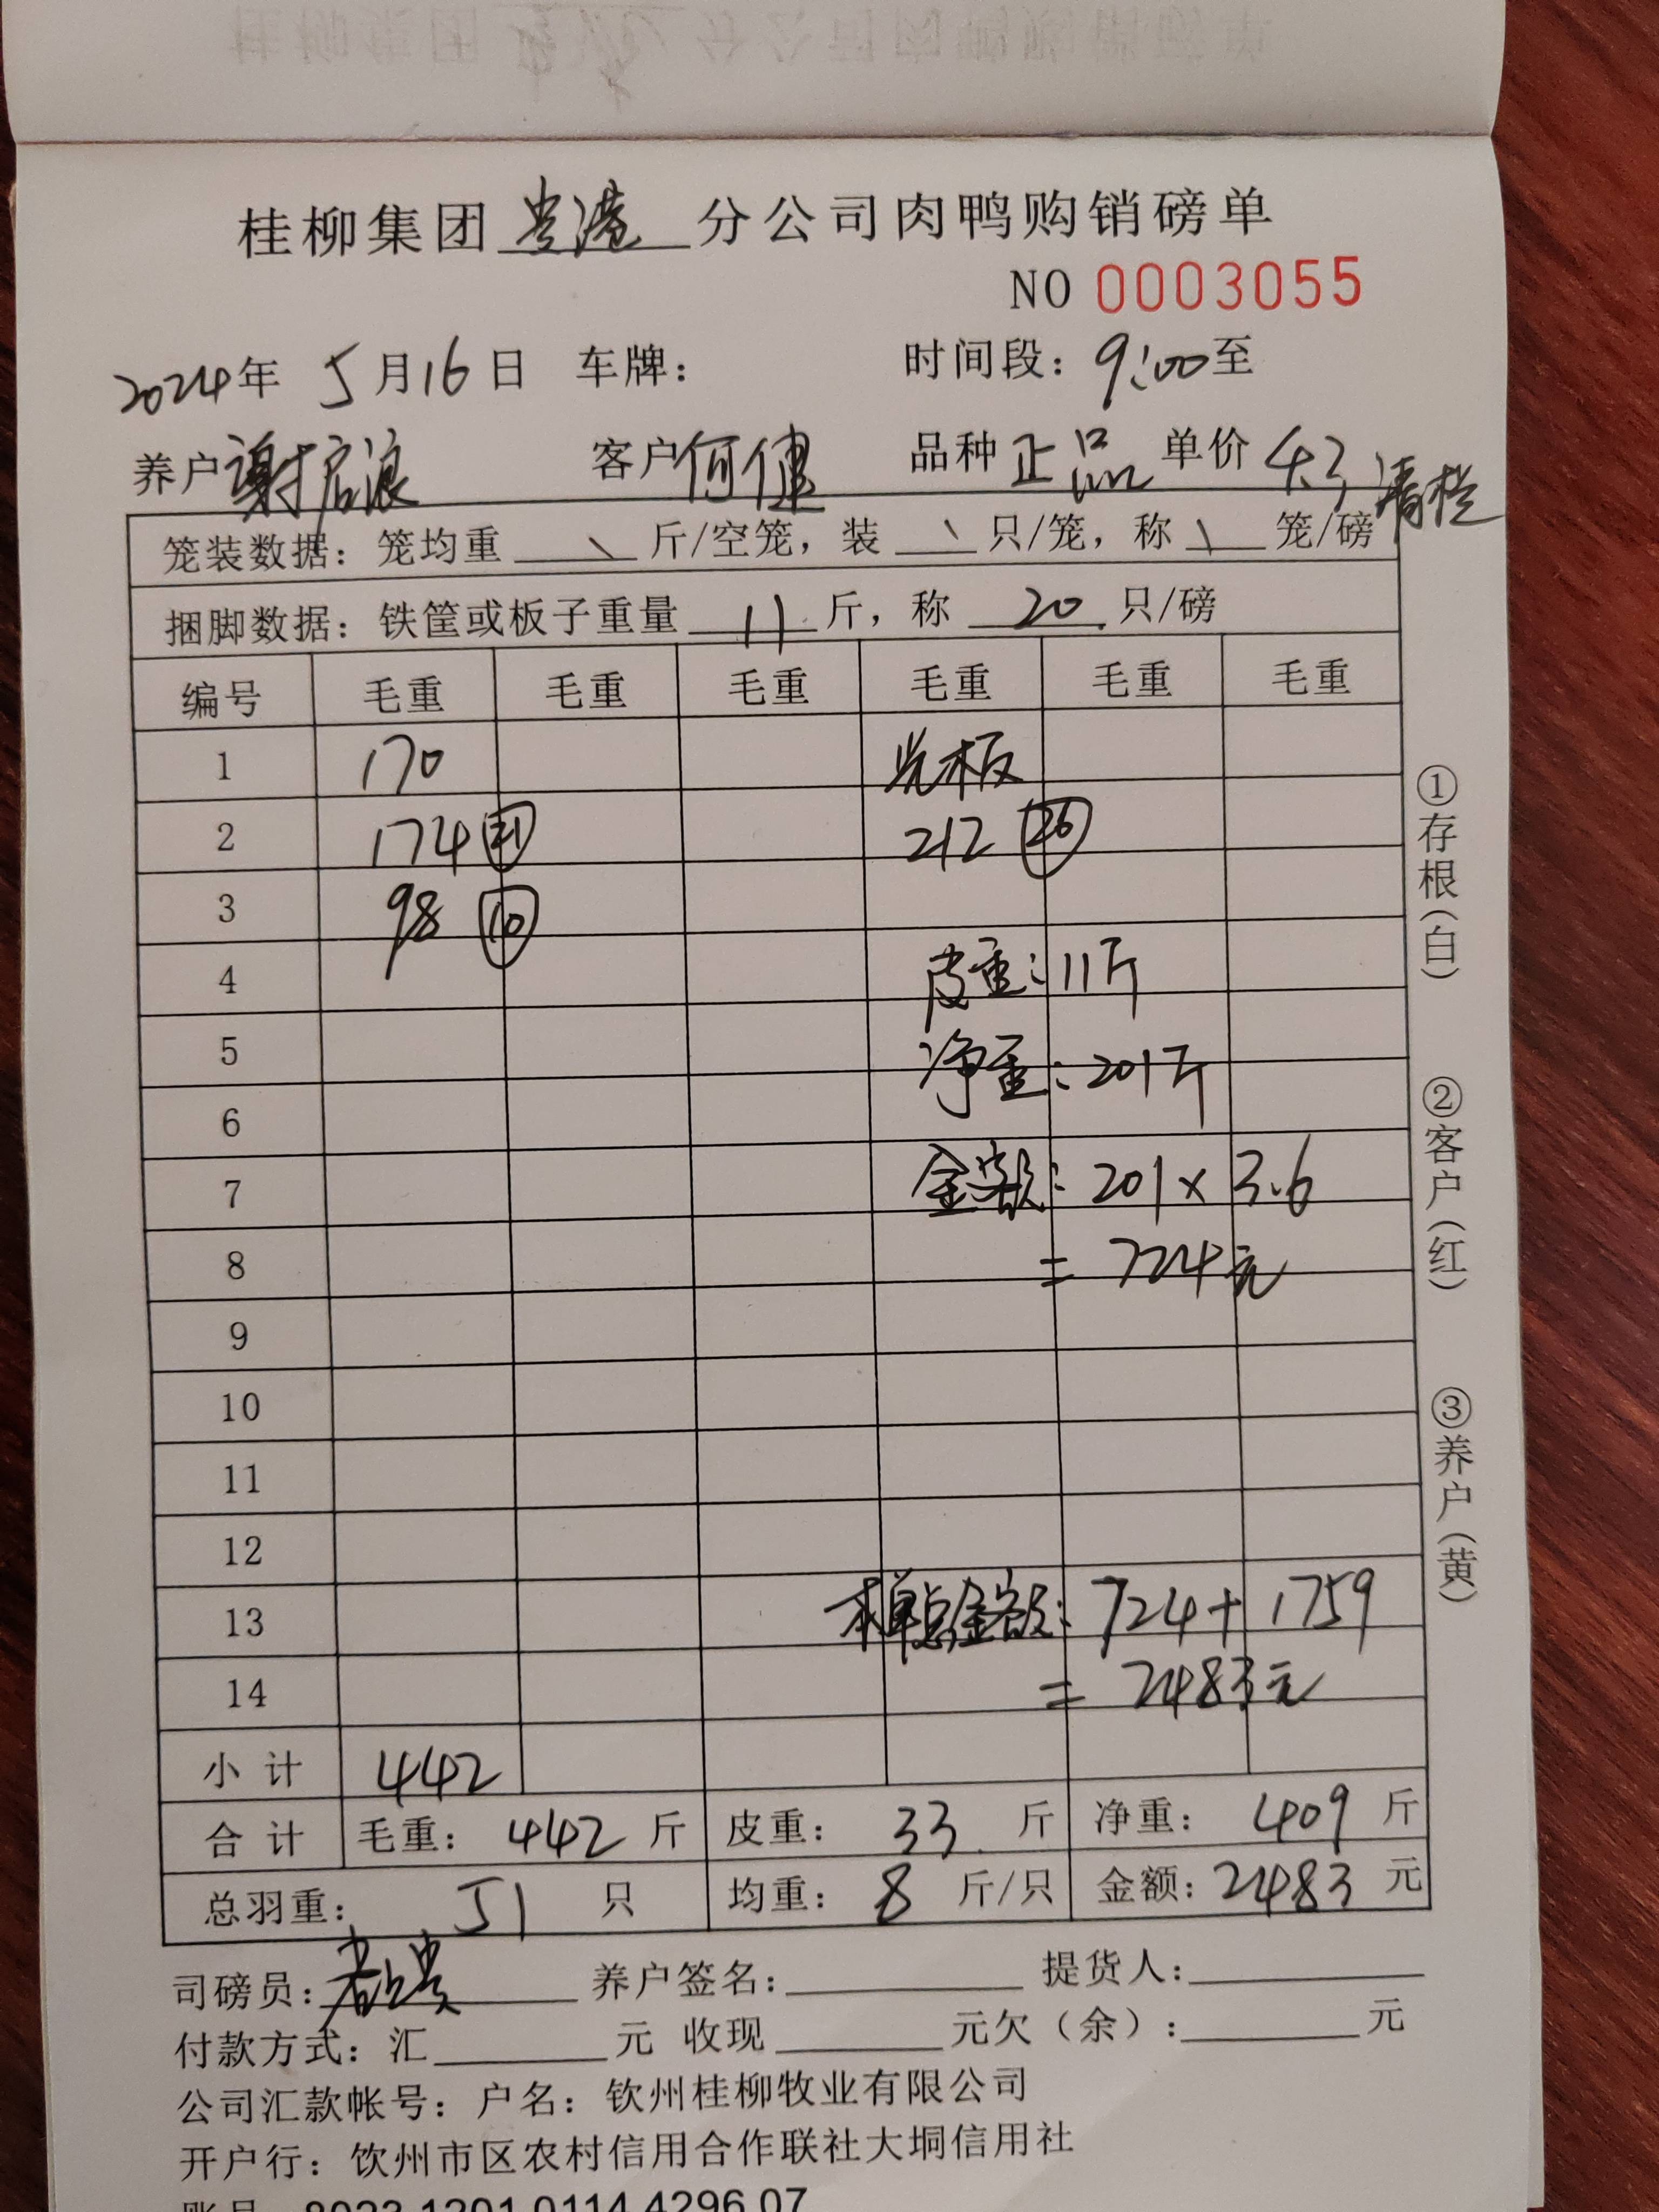 桂柳集团贵港分公司肉鸭购销磅单
NO 0003055
2024年 5月16日 车牌: 时间段: 9:00至
养户谢启浪 客户何健 品种正品 单价4.3 清栏
笼装数据: 笼均重 \ 斤/空笼, 装 \ 只/笼, 称 \ 笼/磅
捆脚数据: 铁筐或板子重量 11 斤, 称 20 只/磅
编号 毛重 毛重 毛重 毛重 毛重 毛重
1 170 光板
2 174 21 212 26
3 98 10
4 皮重: 11斤
5 净重: 201斤
6
7 金额: 201×3.6
8 = 724元
9
10
11
12
13 本单总金额: 724+1759
14 = 2483元
小计 442
合计 毛重: 442 斤 皮重: 33 斤 净重: 409 斤
总羽重: 51 只 均重: 8 斤/只 金额: 2483 元
司磅员: 养户签名: 提货人:
付款方式: 汇 元 收现 元欠(余): 元
公司汇款帐号: 户名: 钦州桂柳牧业有限公司
开户行: 钦州市区农村信用合作联社大垌信用社
账号 8023 1201 0114 4296 07
①存根(白)
②客户(红)
③养户(黄)